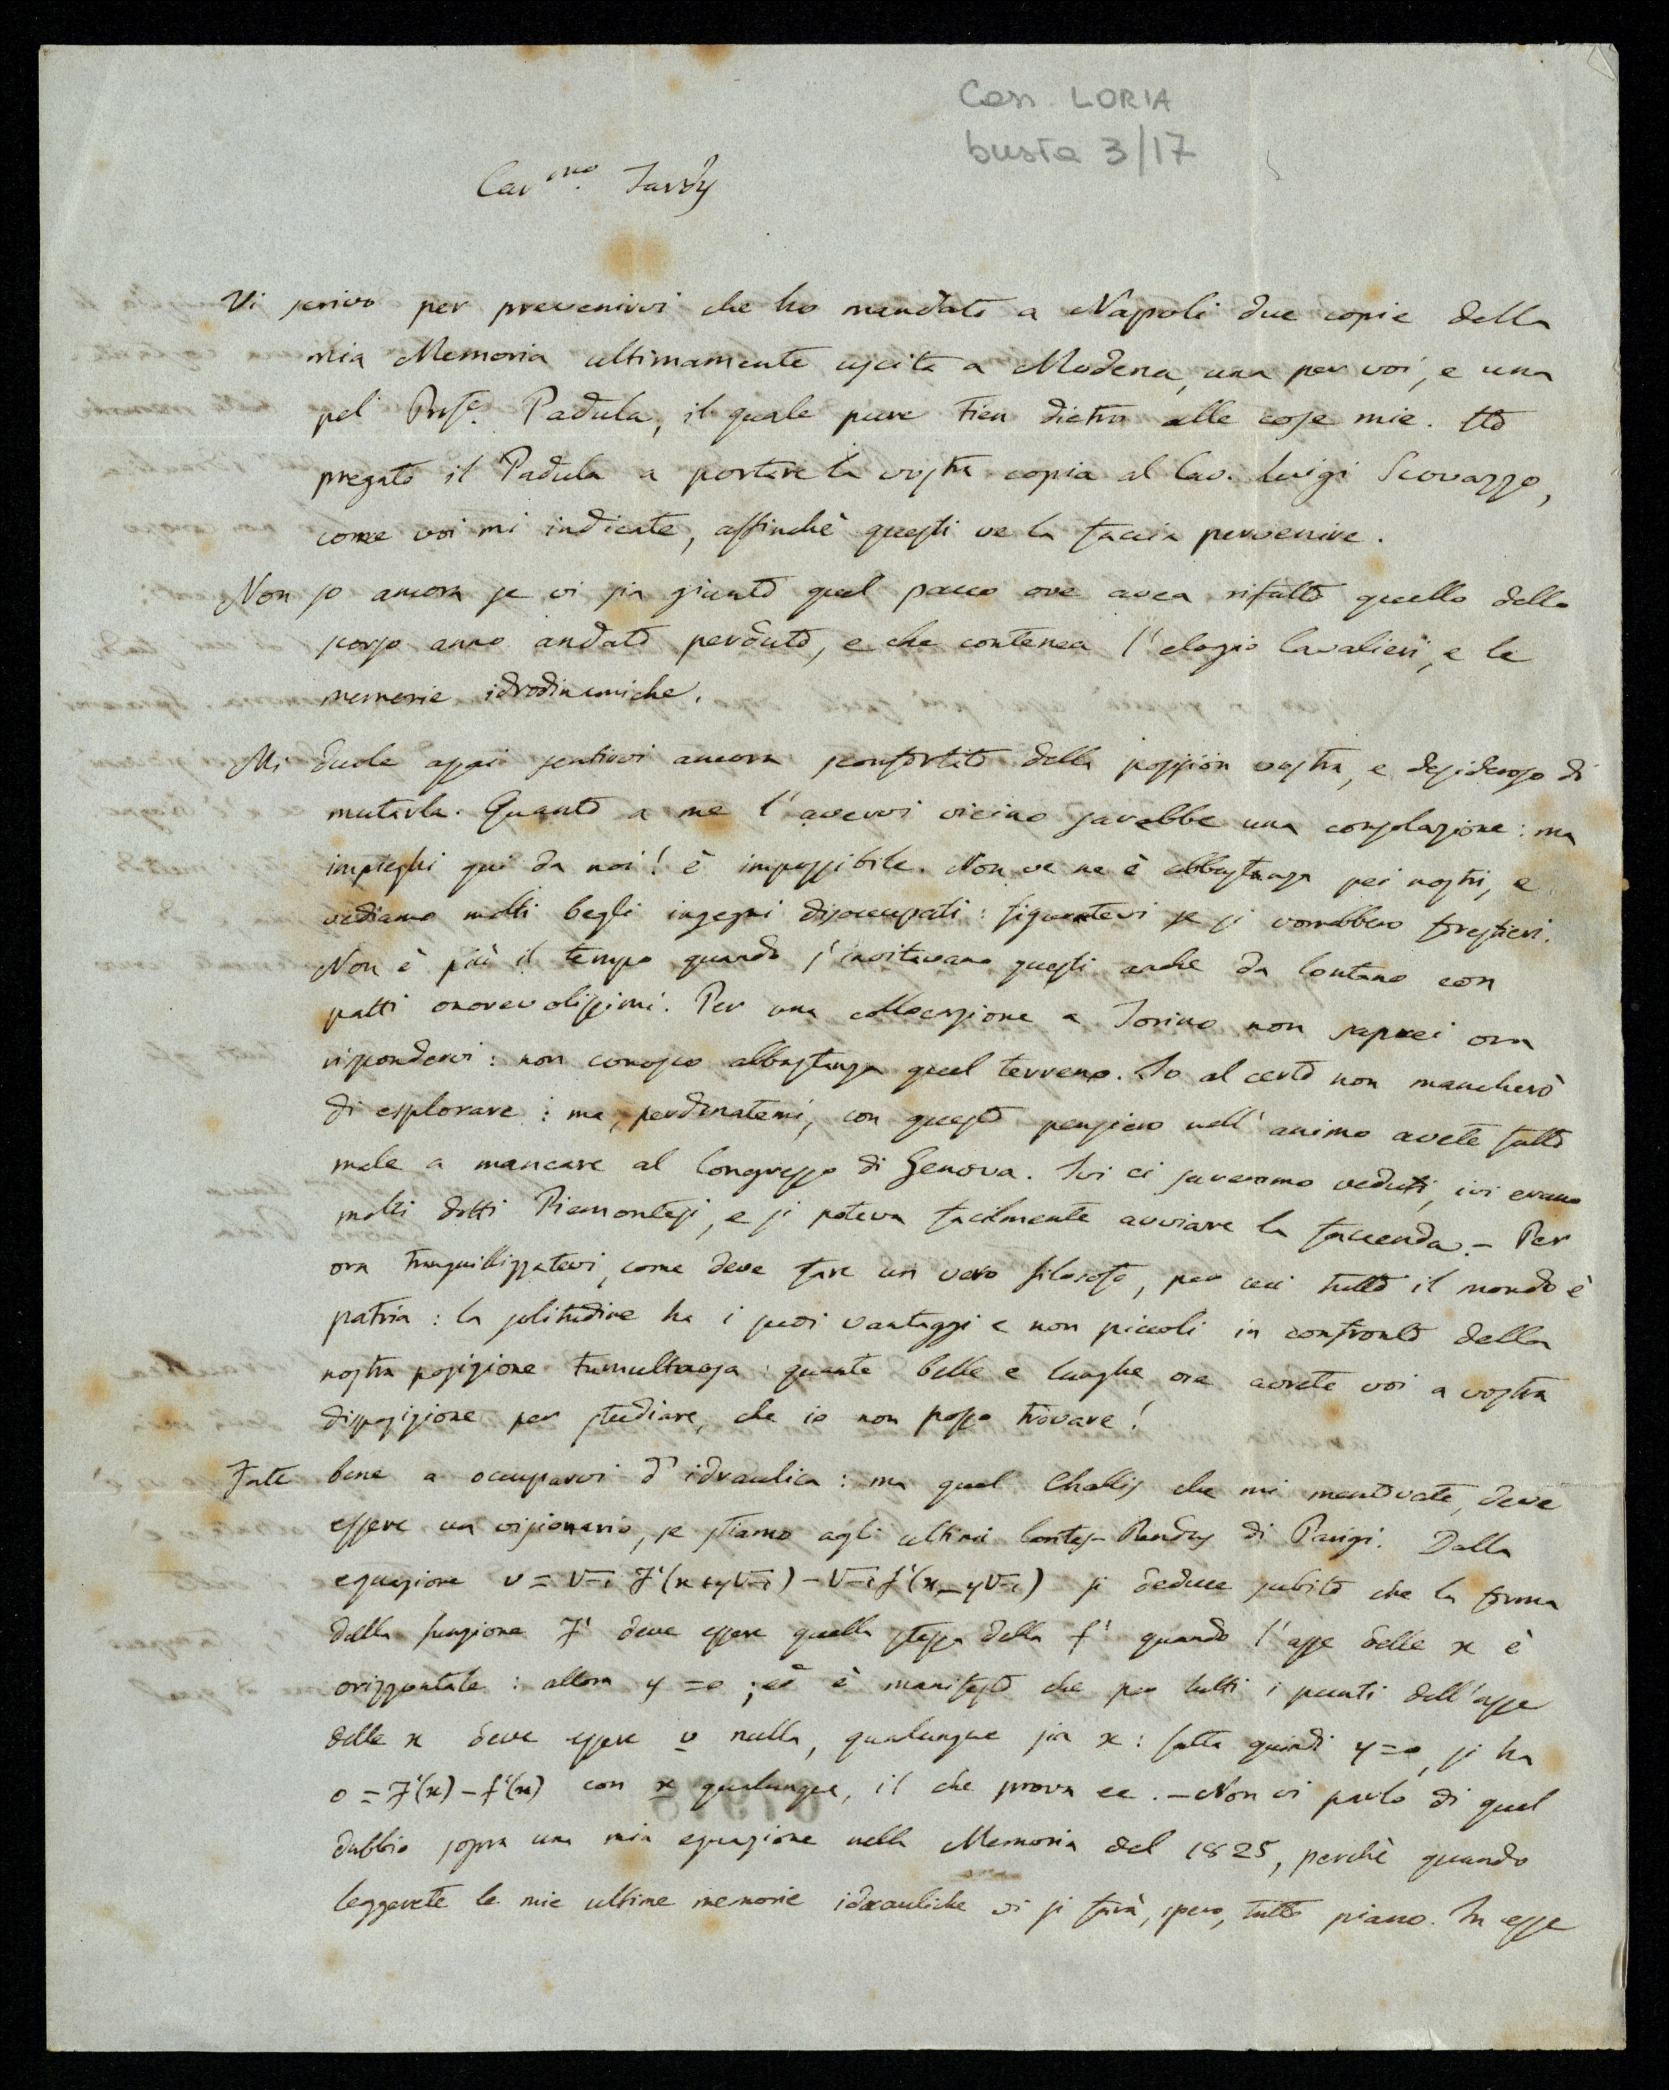 Cass. LORIA
busta 3/17
Car.mo Tardy
Vi scrivo per prevenirvi che ho mandato a Napoli due copie della
mia Memoria ultimamente uscita a Modena, una per voi, e una
pel Profe. Padula, il quale pure tien dietro alle cose mie. Ho
pregato il Padula a portare la vostra copia al Cav. Luigi Scovazzo,
come voi mi indicate, affinchè questi ve la faccia pervenire.
Non so ancora se vi sia giunto quel pacco ove avea rifatto quello dello
scorso anno andato perduto, e che contenea l'elogio Cavalieri, e le
memorie idrodinamiche.
Mi duole assai sentirvi ancora sconfortato della posizion vostra, e desideroso di
mutarla. Quanto a me l'avervi vicino sarebbe una consolazione: ma
impieghi qui da noi! è impossibile. Non ve ne è abbastanza pei nostri, e
vediamo molti begli ingegni disoccupati: figuratevi se si vorrebbero forestieri.
Non è più il tempo quando s'invitavano questi anche da lontano con
patti onorevolissimi. Per una collocazione a Torino non saprei ora
rispondervi: non conosco abbastanza quel terreno. Io al certo non mancherò
di esplorare: ma, perdonatemi, con questo pensiero nell'animo avete fatto
male a mancare al Congresso di Genova. Ivi ci saremmo veduti, ivi erano
molti dotti Piemontesi, e si poteva facilmente avviare la faccenda. - Per
ora tranquillizzatevi, come deve fare un vero filosofo, per cui tutto il mondo è
patria: la solitudine ha i suoi vantaggi e non piccoli in confronto della
nostra posizione tumultuosa: quante belle e lunghe ore avrete voi a vostra
disposizione per studiare, che io non posso trovare!
Fate bene a occuparvi d'idraulica: ma quel Challis che mi mentovate, deve
essere un visionario, se stiamo agli ultimi Contes-Rendus di Parigi. Dalla
equazione v = √-1 F'(x+y√-1) - √-1 f'(x-y√-1) si deduce subito che la forma
della funzione F' deve essere quella stessa della f' quando l'asse delle x è
orizzontale: allora y = 0; ed è manifesto che per tutti i punti dell'asse
delle x deve essere v nulla, qualunque sia x: fatta quindi y=0, si ha
0 = F'(x) - f'(x) con x qualunque, il che prova ec. - Non vi parlo di quel
dubbio sopra una mia equazione nella Memoria del 1825, perchè quando
leggerete le mie ultime memorie idrauliche vi si farà, spero, tutto piano. In esse